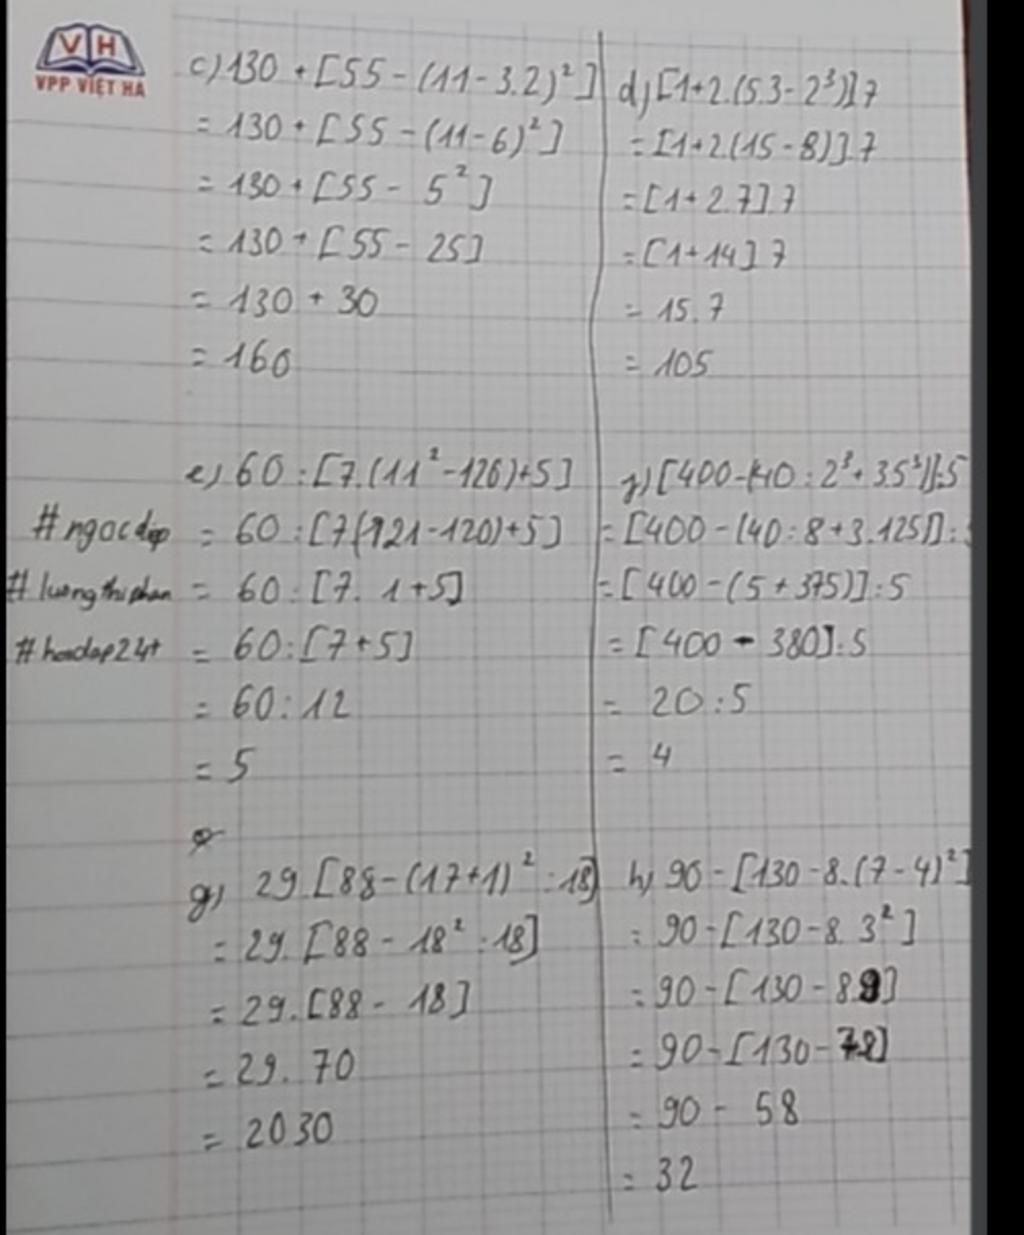 VH
VPP VIỆT HÀ
c) 130 + [55 - (11 - 3.2)²]
= 130 + [55 - (11 - 6)²]
= 130 + [55 - 5²]
= 130 + [55 - 25]
= 130 + 30
= 160
d) [1+2.(5.3 - 2³)].7
= [1+2.(15 - 8)].7
= [1 + 2.7].7
= [1 + 14].7
= 15.7
= 105
e) 60 : [7.(11² - 120) + 5]
= 60 : [7(121 - 120) + 5]
= 60 : [7. 1 + 5]
= 60 : [7 + 5]
= 60 : 12
= 5
#ngocdiep
#luongthiphan
#hoidap24+
f) [400 - (40 : 2³ + 3.5³)] : 5
= [400 - (40 : 8 + 3.125)] : 5
= [400 - (5 + 375)] : 5
= [400 - 380] : 5
= 20 : 5
= 4
g) 29.[88 - (17 + 1)² : 18]
= 29.[88 - 18² : 18]
= 29.[88 - 18]
= 29. 70
= 2030
h) 90 - [130 - 8.(7 - 4)²]
= 90 - [130 - 8. 3²]
= 90 - [130 - 8.9]
= 90 - [130 - 72]
= 90 - 58
= 32